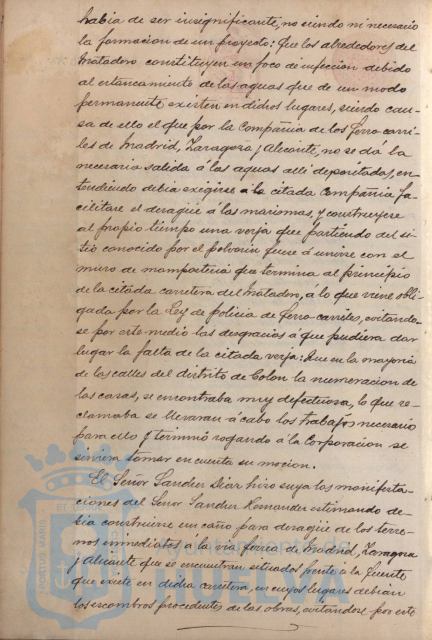 habia de ser insignificante, no siendo ni necesario
la formacion de un proyecto: Que los alrededores del
Matadero constituyen un foco de infeccion debido
al estancamiento de las aguas que de un modo
permanente existen en dichos lugares, siendo cau-
sa de ello el que por la Compañia de los ferro-carri-
les de Madrid, Zaragoza y Alicante, no se dá la
necesaria salida á las aguas alli depositadas, en-
tendiendo debia exigirse á la citada Compañia fa-
cilitare el desagüe á las marismas, y construyere
al propio tiempo una verja que partiendo del si-
tio conocido por el polvorin fuese á unirse con el
muro de mamposteria que termina al principio
de la citada carretera del Matadero, á lo que viene obli-
gada por la Ley de policia de ferro-carriles, evitando-
se por este medio las desgracias á que pudiera dar
lugar la falta de la citada verja: Que en la mayoria
de las calles del distrito de Colon la numeracion de
las casas, se encontraba muy defectuosa, lo que re-
clamaba se llevaran á cabo los trabajos necesario
para ello y terminó rogando á la Corporacion se
sirviera tomar en cuenta su mocion.
El Señor Sanchez Diaz hizo suya las manifesta-
ciones del Señor Sanchez Hernandez estimando de-
bia construirse un caño para desagüe de los terre-
nos inmediatos a la via ferrea de Madrid, Zaragoza
y Alicante que se encuentran situados frente á la fuente
que existe en dicha carretera, en cuyos lugares debian
los escombros procedentes de las obras, evitandose por este
PORTUS MARIS
HUELVA